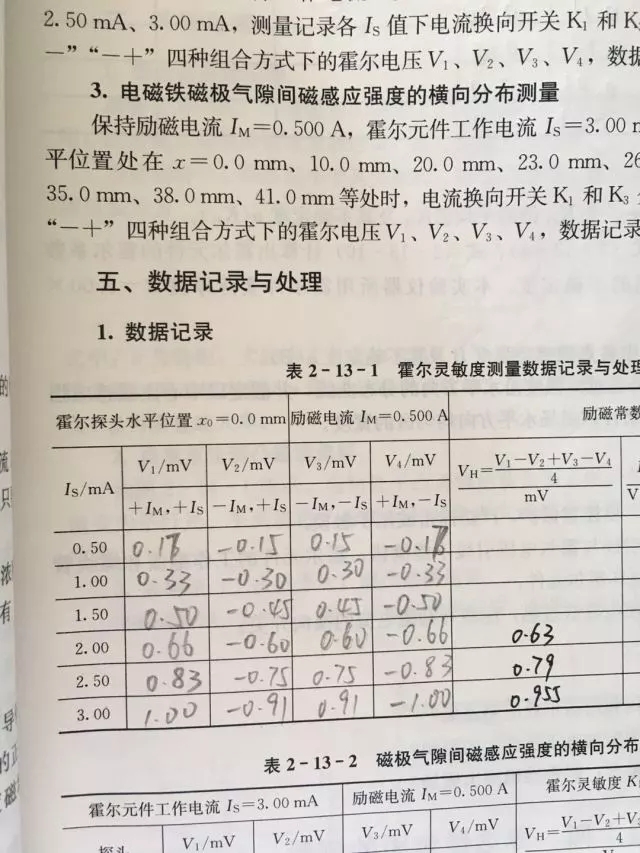 2.50 mA、3.00 mA，测量记录各 IS 值下电流换向开关 K1 和 K
一”“一＋” 四种组合方式下的霍尔电压V1、V2、V3、V4，数据
3. 电磁铁磁极气隙间磁感应强度的横向分布测量
保持励磁电流 IM=0.500 A，霍尔元件工作电流 IS=3.00
平位置处在 x=0.0 mm、10.0 mm、20.0 mm、23.0 mm、26
35.0 mm、38.0 mm、41.0 mm 等处时，电流换向开关 K1 和 K3
“一＋” 四种组合方式下的霍尔电压V1、V2、V3、V4，数据记录
五、数据记录与处理
1. 数据记录
表 2-13-1 霍尔灵敏度测量数据记录与处理
霍尔探头水平位置 x0=0.0 mm 励磁电流 IM=0.500 A 励磁常数
IS/mA V1/mV V2/mV V3/mV V4/mV VH=(V1-V2+V3-V4)/4 mV
+IM,+IS -IM,+IS -IM,-IS +IM,-IS
0.50 -0.15 0.15
1.00 0.33 -0.30 0.30 -0.33
1.50 0.50 -0.45 0.45 -0.50
2.00 0.66 -0.60 0.60 -0.66 0.63
2.50 0.83 -0.75 0.75 -0.83 0.79
3.00 1.00 -0.91 0.91 -1.00 0.955
表 2-13-2 磁极气隙间磁感应强度的横向分布
霍尔元件工作电流 IS=3.00 mA 励磁电流 IM=0.500 A 霍尔灵敏度 K
探头 V1/mV V2/mV V3/mV V4/mV VH=V1-V2+V3